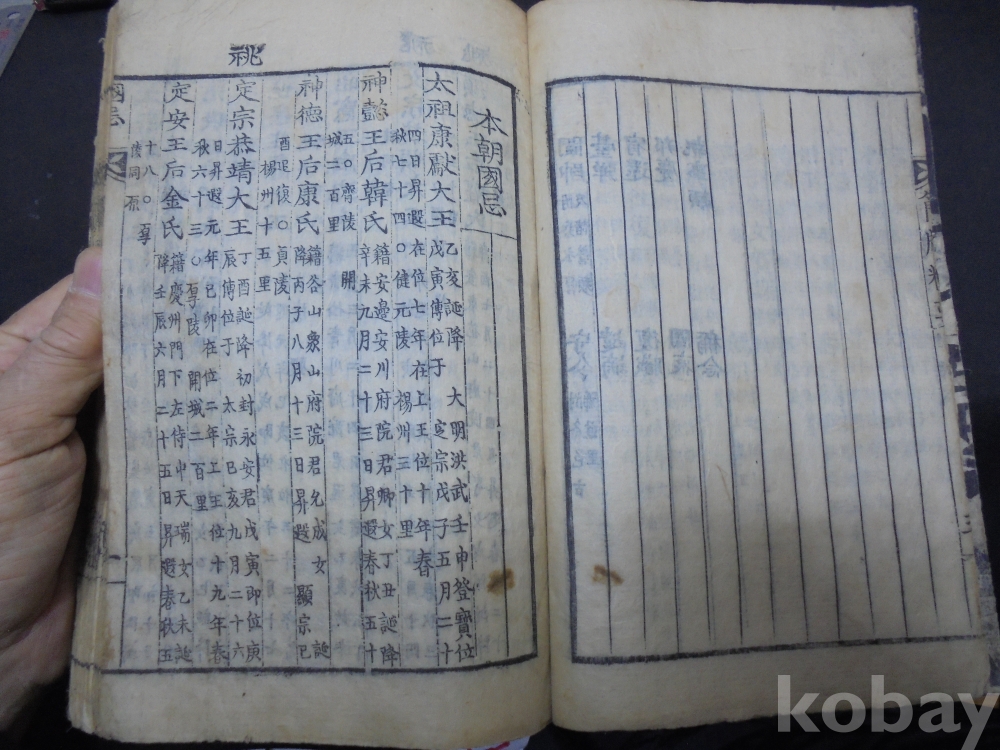 祧
本朝國忌
太祖康獻大王乙亥誕降 大明洪武壬申登寶位
戊寅傳位于 定宗戊子五月二十
四日昇遐在位七年在上王位十年春
秋七十四○健元陵 楊州三十里
神懿王后韓氏籍安邊安川府院君卿女丁丑誕降
辛未九月二十三日昇遐春秋五十
五○齊陵 開
城二百里
神德王后康氏籍谷山象山府院君允成女 誕
降丙子八月十三日昇遐 顯宗己
酉追復○貞陵
楊州十五里
定宗恭靖大王丁酉誕降初封永安君戊寅即位庚
辰傳位于 太宗己亥九月二十六
日昇遐元年己卯在位二年上王位十九年春
秋六十三○厚陵 開城二百里
定安王后金氏籍慶州門下左侍中天瑞女乙未誕
降壬辰六月二十五日昇遐春秋五
十八○厚
陵同原
國忌
一
kobay